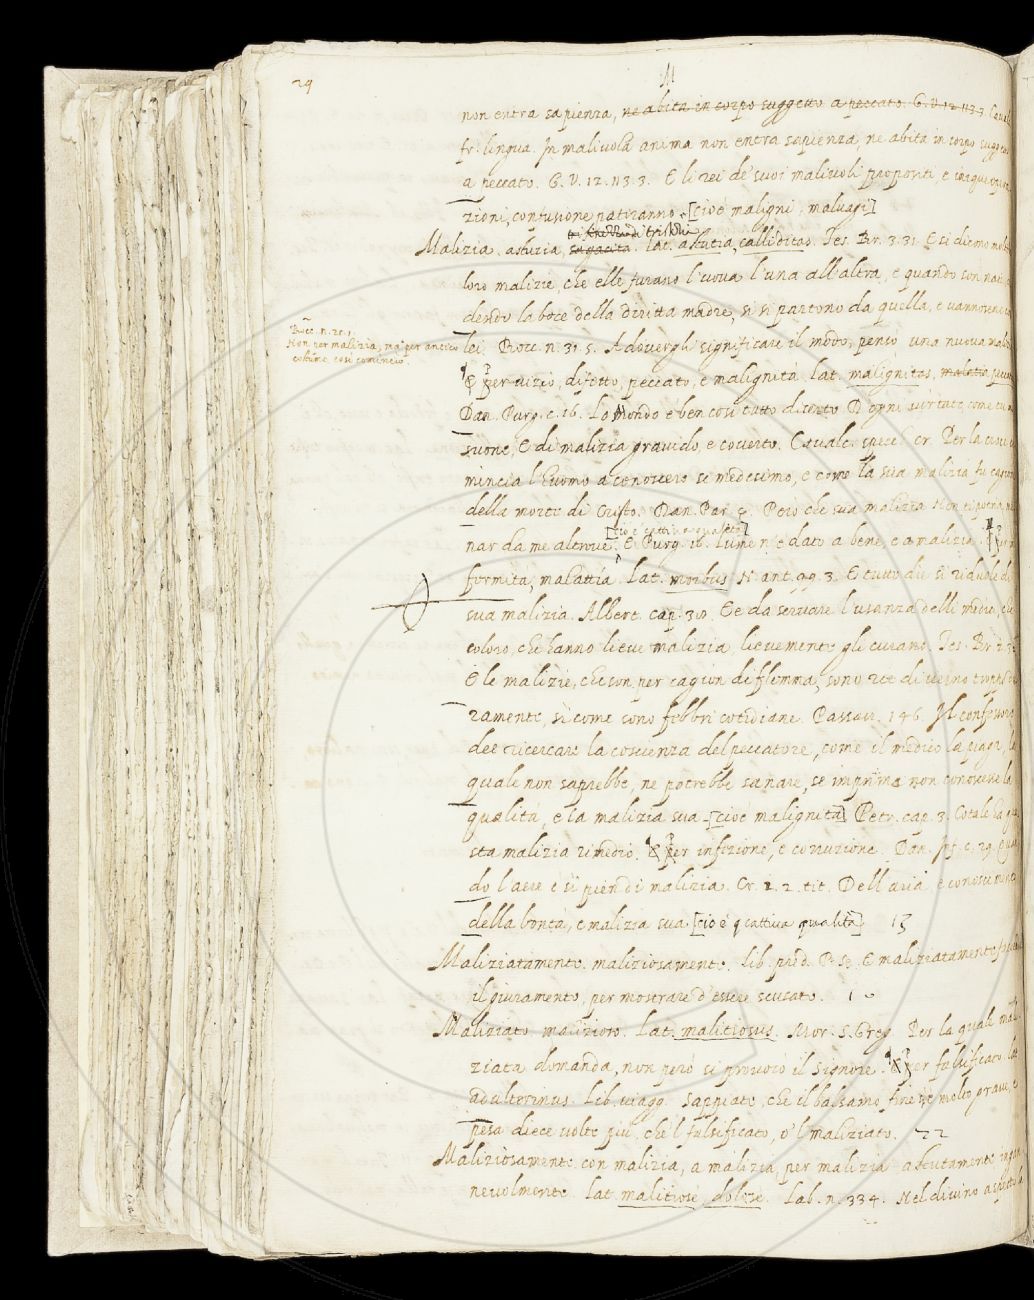 29
M
non entra sapienza, ne abita in corpo suggetto a peccato. G. V. 12. 113. 3. Caval
fr. lingua. In malivola anima non entra sapienza, ne abita in corpo sugge
a peccato. G. V. 12. 113. 3. E li rei de' suoi malivoli propositi e inique
zioni, confusione patiranno. [cioè maligni, malvagi]
Malizia. astuzia, sagacita. Lat. astutia, calliditas. Tes. Br. 3. 31. E si diremo
loro malizie, che elle furano l'uova l'una all'altra, e quando son nati
dendo la boce della diritta madre, si si partono da quella, e vannosene
lei. Bocc. n. 31. 5. A dovergli significare il modo, pensò una nuova mali
Bocc. n. 21. 1.
Non per malizia, ma per antico
costume così comincio.
& per vizio, difetto, peccato, e malignità. Lat. malignitas, malitia
Dan. Purg. c. 16. Lo Mondo è ben così tutto diserto D'ogni virtute, come tu m
suone, E di malizia gravido, e coverto. Cavalc. specch. cr. Per la
mincia l'Huomo a conoscere se medesimo, e come la sua malizia fu cagion
della morte di Cristo. Dan. Par. 4. Però che sua malizia Non ti porria
nar da me altrove. E Purg. 16. Lume n'è dato a bene, e a malizia.
[cioè cattiva qualità]
fermità, malattia. Lat. morbus. N. ant. 99. 3. E tutto dì si riduole di
sua malizia. Albert. cap. 30. Ee da servare l'usanza delli medici, che
coloro, che hanno lieve malizia lievemente gli curano. Tes. Br. 2. 3
E le malizie, che son per cagion di flemma, sono ree di verno
ramente, sì come sono febbri cotidiane. Passav. 146. Il confessoro
dee ricercare la coscienza del peccatore, come il medico la piaga, la
quale non saprebbe, ne potrebbe sanare, se imprima non conoscesse la
qualità, e la malizia sua [cioè malignità] Petr. cap. 3. Cotale ha que
sta malizia rimedio. & per infezione, e corruzione. Dan. Inf. c. 29. qua
do l'aere è sì pien di malizia. Cr. 1. 2. tit. Dell'aria, e conoscimento
della bontà, e malizia sua [cioè cattiva qualità] 13
Maliziatamente. maliziosamente. Lib. pred. R. E maliziatamente
il giuramento, per mostrare d'essere scusato. 10
Maliziato. malizioso. Lat. malitiosus. Mor. S. Greg. Per la quale mali
ziata domanda, non però si provocò il Signore. & per falsificato. lat.
adulterinus. Lib. viagg. Sappiate, che il balsamo fine è molto grave, e
pesa diece volte più, che'l falsificato, o'l maliziato. 22
Maliziosamente. con malizia, a malizia, per malizia. astutamente
nevolmente. Lat. malitiosè, dolose. Lab. n. 334. Nel divino aspetto